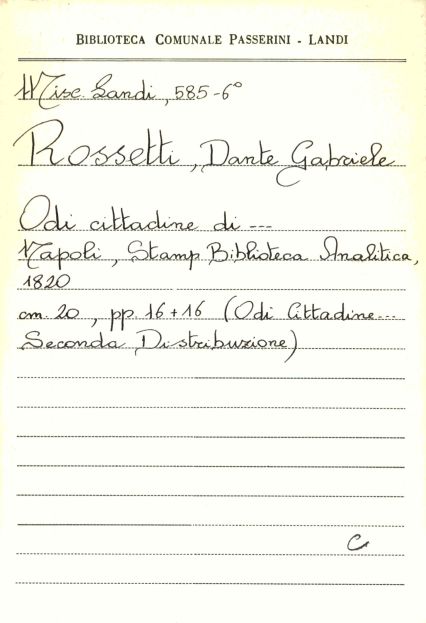 BIBLIOTECA COMUNALE PASSERINI - LANDI
Misc. Landi, 585-6°
Rossetti, Dante Gabriele
Odi cittadine di ---
Napoli, Stamp. Biblioteca Analitica,
1820
cm. 20, pp. 16+16 (Odi Cittadine...
Seconda Distribuzione)
C